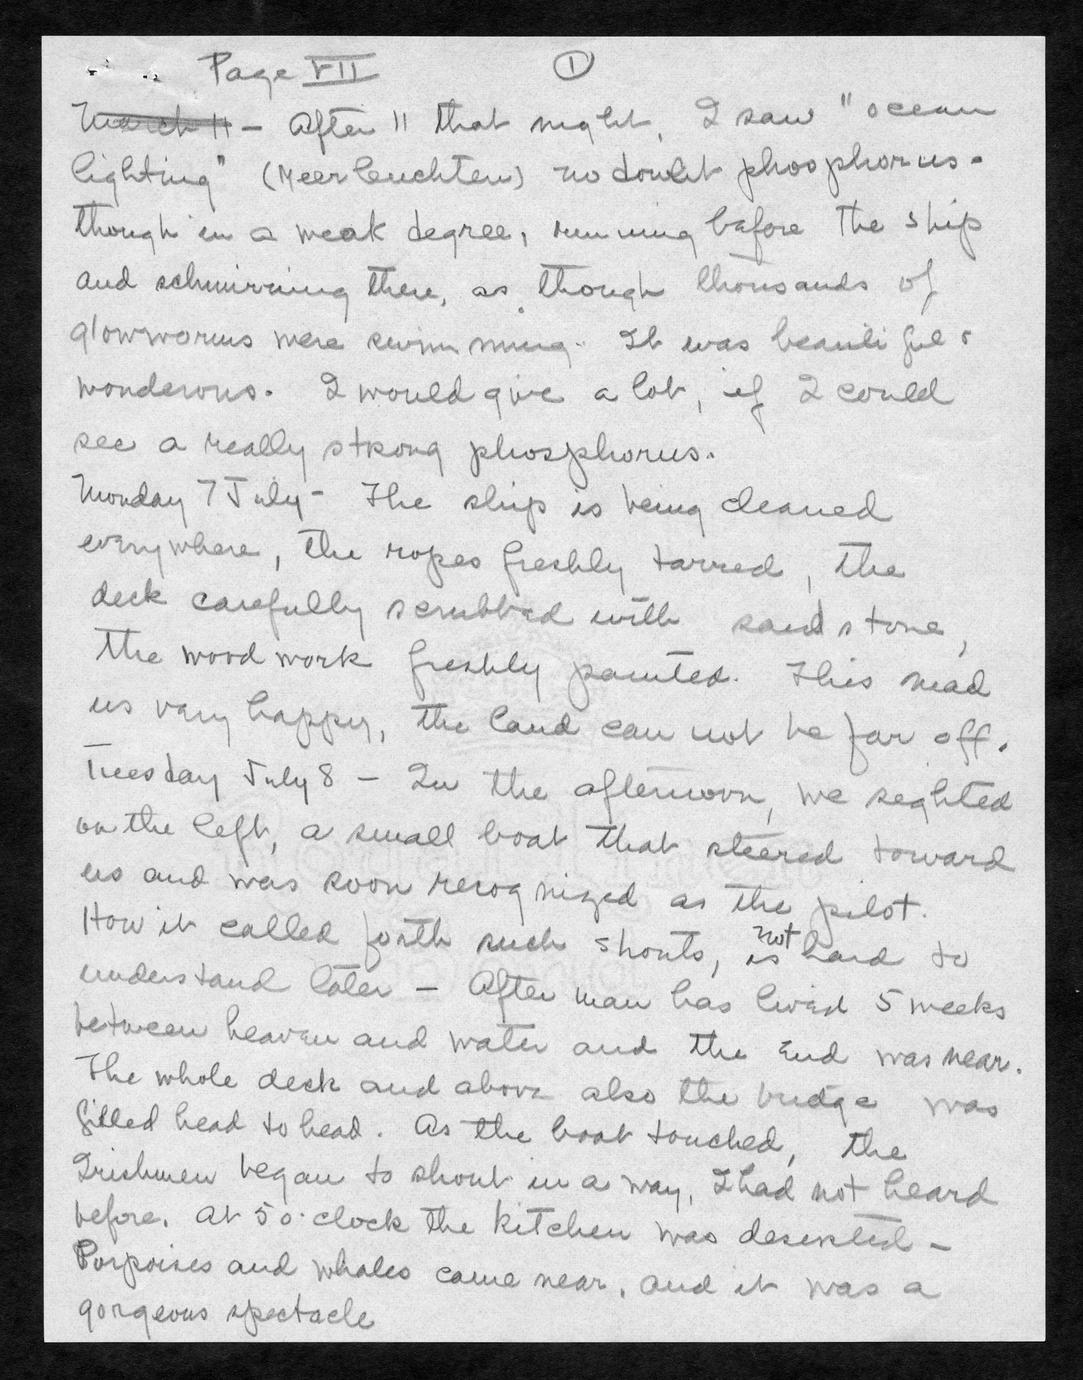 Page VII ①
March 11 - After 11 that night, I saw "ocean
lighting" (Meerleuchten) no doubt phosphorus -
though in a weak degree, running before the ship
and schmirring there, as though thousands of
glowworms were swimming. It was beautiful &
wonderous. I would give a lot, if I could
see a really strong phosphorus.
Monday 7 July - The ship is being cleaned
everywhere, the ropes freshly tarred, the
deck carefully scrubbed with sand stone,
the wood work freshly painted. This mad
us very happy, the land can not be far off.
Tuesday July 8 - In the afternoon, we seghted
on the left, a small boat that steered toward
us and was soon recognized as the pilot.
How it called forth such shouts, is not hard to
understand later - After man has lived 5 weeks
between heaven and water and the End was near.
The whole deck and above also the bridge was
filled head to head. As the boat touched, the
Irishmen began to shout in a way, I had not heard
before. At 5 o'clock the kitchen was deserted -
Porpoises and whales came near, and it was a
gorgeous spectacle